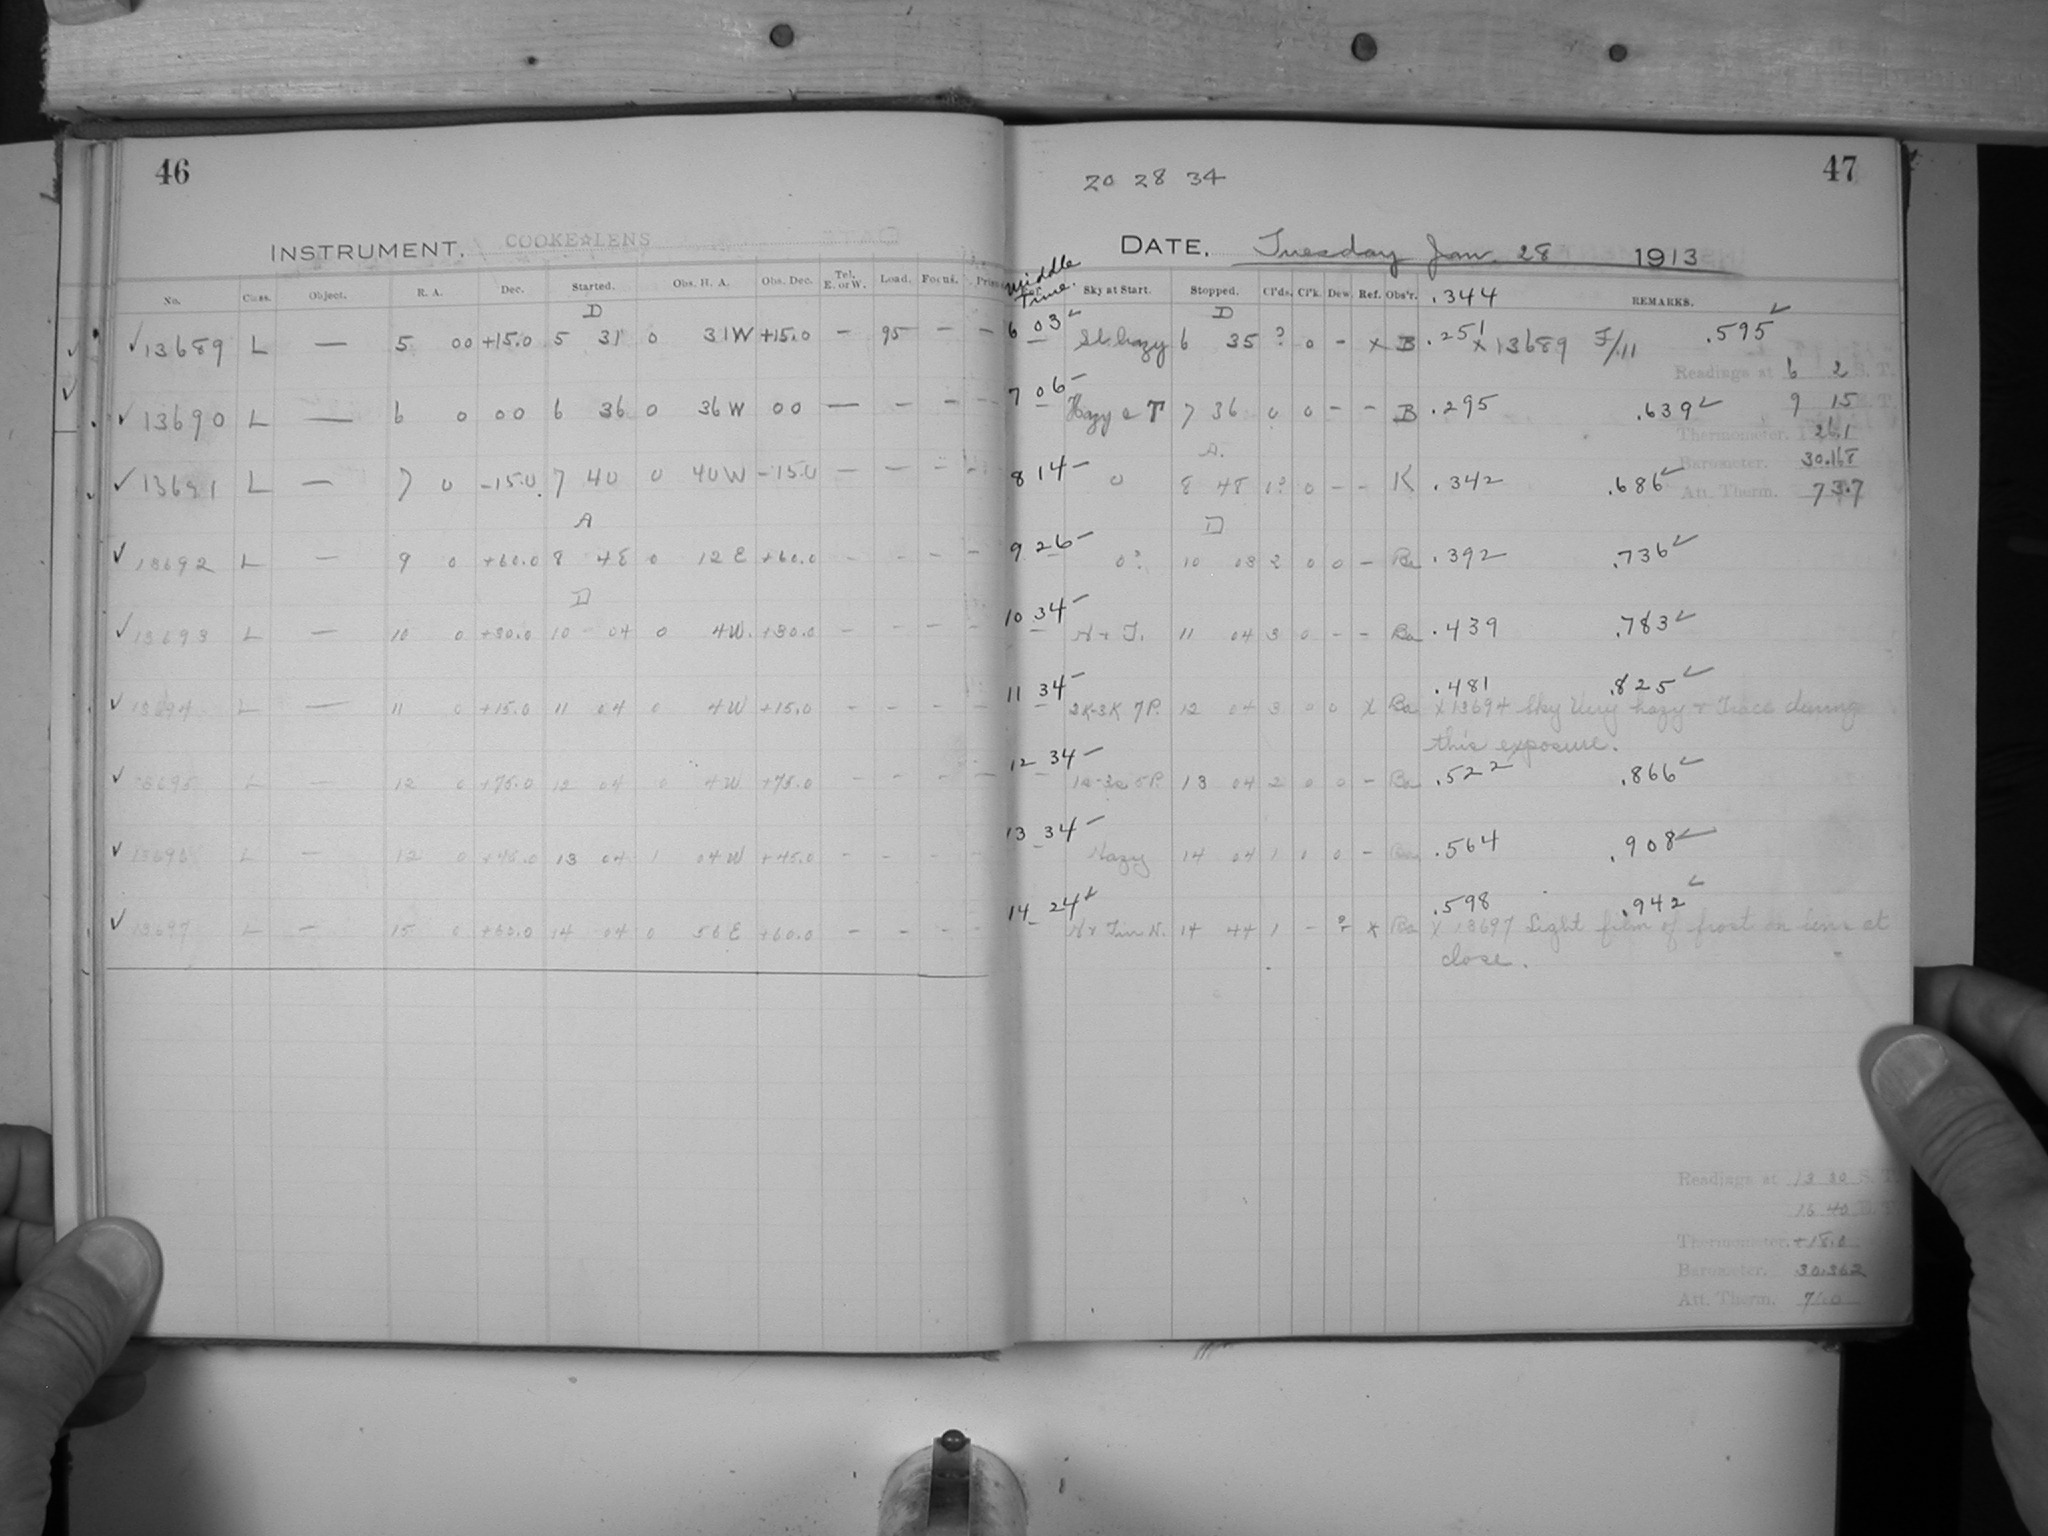 46
INSTRUMENT. COOKE☆LENS
No. Class. Object. R. A. Dec. Started. Obs. H. A. Obs. Dec. Tel. E. or W. Load. Focus. Prism
D
13689 L — 5 00 +15.0 5 31 0 31W +15.0 - 95 - -
13690 L — 6 0 00 6 36 0 36W 00 — - - -
13691 L — 7 0 -15.0 7 40 0 40W -15.0 - - -
A
13692 L - 9 0 +60.0 8 48 0 12E +60.0 - - - -
D
13693 L — 10 0 +30.0 10 04 0 4W. +30.0 - - - -
13694 L — 11 0 +15.0 11 04 0 4W +15.0 - - - -
13695 L - 12 0 +75.0 12 04 0 4W +75.0 - - - -
13696 L - 12 0 +45.0 13 04 1 04W +45.0 - - - -
13697 L - 15 0 +60.0 14 04 0 56E +60.0 - - - -
47
20 28 34
DATE. Tuesday Jan. 28 1913
Middle Time. Sky at Start. Stopped. Cl'ds. Cl'k. Dew. Ref. Obs'r. .344 REMARKS.
D
6 03 Sl. hazy 6 35 ? 0 - x B .251 x 13689 F/11 .595
Readings at 6 2 S. T.
7 06 Hazy & T 7 36 0 0 - - B .295 .639 9 15
Thermometer. 26.1
A.
Barometer. 30.168
8 14 0 8 48 0? 0 - - K .342 .686 Att. Therm. 73.7
D
9 26 0? 10 08 2 0 0 - Ba .392 .736
10 34 H & T. 11 04 3 0 - - Ba .439 .783
11 34 2K-3K 7P. 12 04 3 0 0 x Ba .481 .825
x 13694 Sky Very hazy & Trace during
this exposure.
12 34 5P. 13 04 2 0 0 - Ba .522 .866
13 34 Hazy 14 04 1 0 0 - Ba .564 .908
14 24 14 44 1 - ? x Ba .598 .942
x 13697 Light film of frost on lens at
close.
Readings at 13 30 S. T.
16 40
Thermometer. +18.0
Barometer. 30.362
Att. Therm.